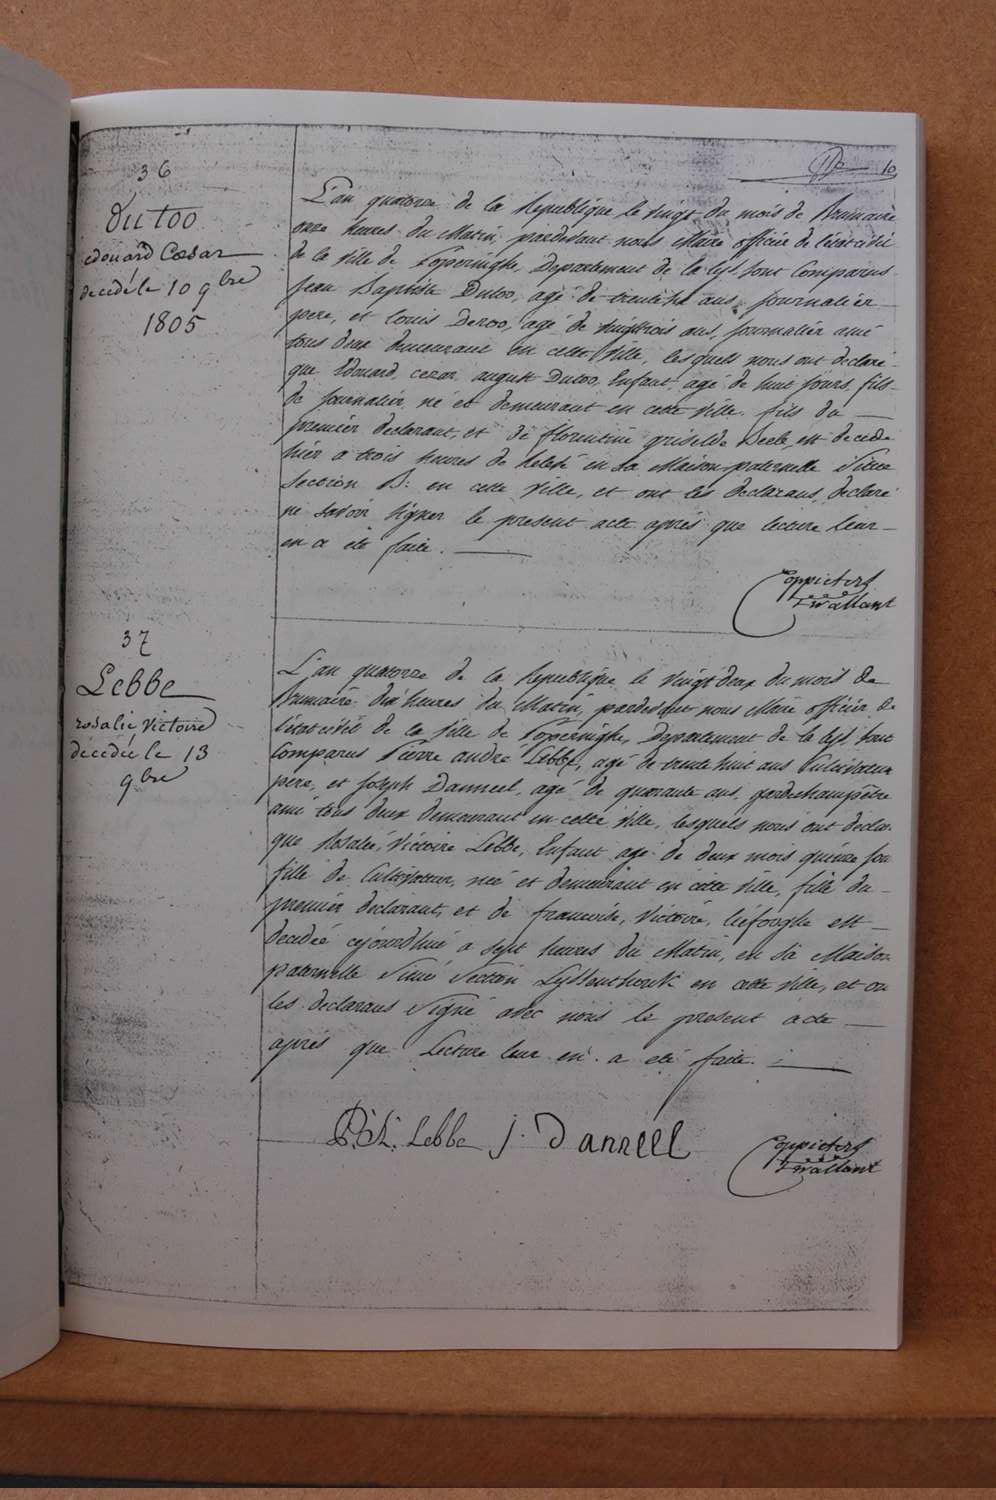 10
36
Dutoo
edouard Cæsar
decédé le 10 9bre
1805
L'an quatorze de la Republique le vingt du mois de Brumaire
onze heures du Matin, pardevant nous Maire officier de l'état civil
de la ville de Poperinghe, Departement de la Lys, sont Comparus
Jean Baptiste Dutoo, agé de ans, journalier
pere, et Louis Deroo, agé de vingttrois ans, journalier ami
tous deux demeurant en cette Ville, lesquels nous ont declaré
que Edouard, cezar, august Dutoo, Enfant, agé de huit jours, fils
de Journalier, né et demeurant en cette Ville, fils du
premier declarant, et de florentine griselde est decedé
hier a trois heures de en sa Maison paternelle situé
Section B: en cette Ville, et ont les declarans, declaré
ne savoir signer le present acte après que lecture leur
en a eté faite.
Coppieters
T'wallant
37
Lebbe
rosalie victoire
décédée le 13
9bre
L'an quatorze de la Republique le vingt deux du mois de
Brumaire dix heures du Matin, pardevant nous Maire officier de
l'état civil de la Ville de Poperinghe, Departement de la Lys, sont
Comparus Pierre andré Lebbe, agé de trente huit ans Cultivateur
pere, et Joseph Danneel, agé de quarante ans, gardechampêtre
ami tous deux demeurant en cette Ville, lesquels nous ont declaré
que Rosalie, Victoire Lebbe, Enfant agé de deux mois quinze jou
fille de Cultivateur, née et demeurant en cette Ville, fille du
premier declarant, et de francoise, Victoire, Liefooghe est
decedée cejourdhui a sept heures du Matin, en sa Maison
paternelle situé Section en cette Ville, et on
les declarans signé avec nous le present acte
après que Lecture leur en a eté faite.
Lebbe J. Danneel
Coppieters
T'wallant